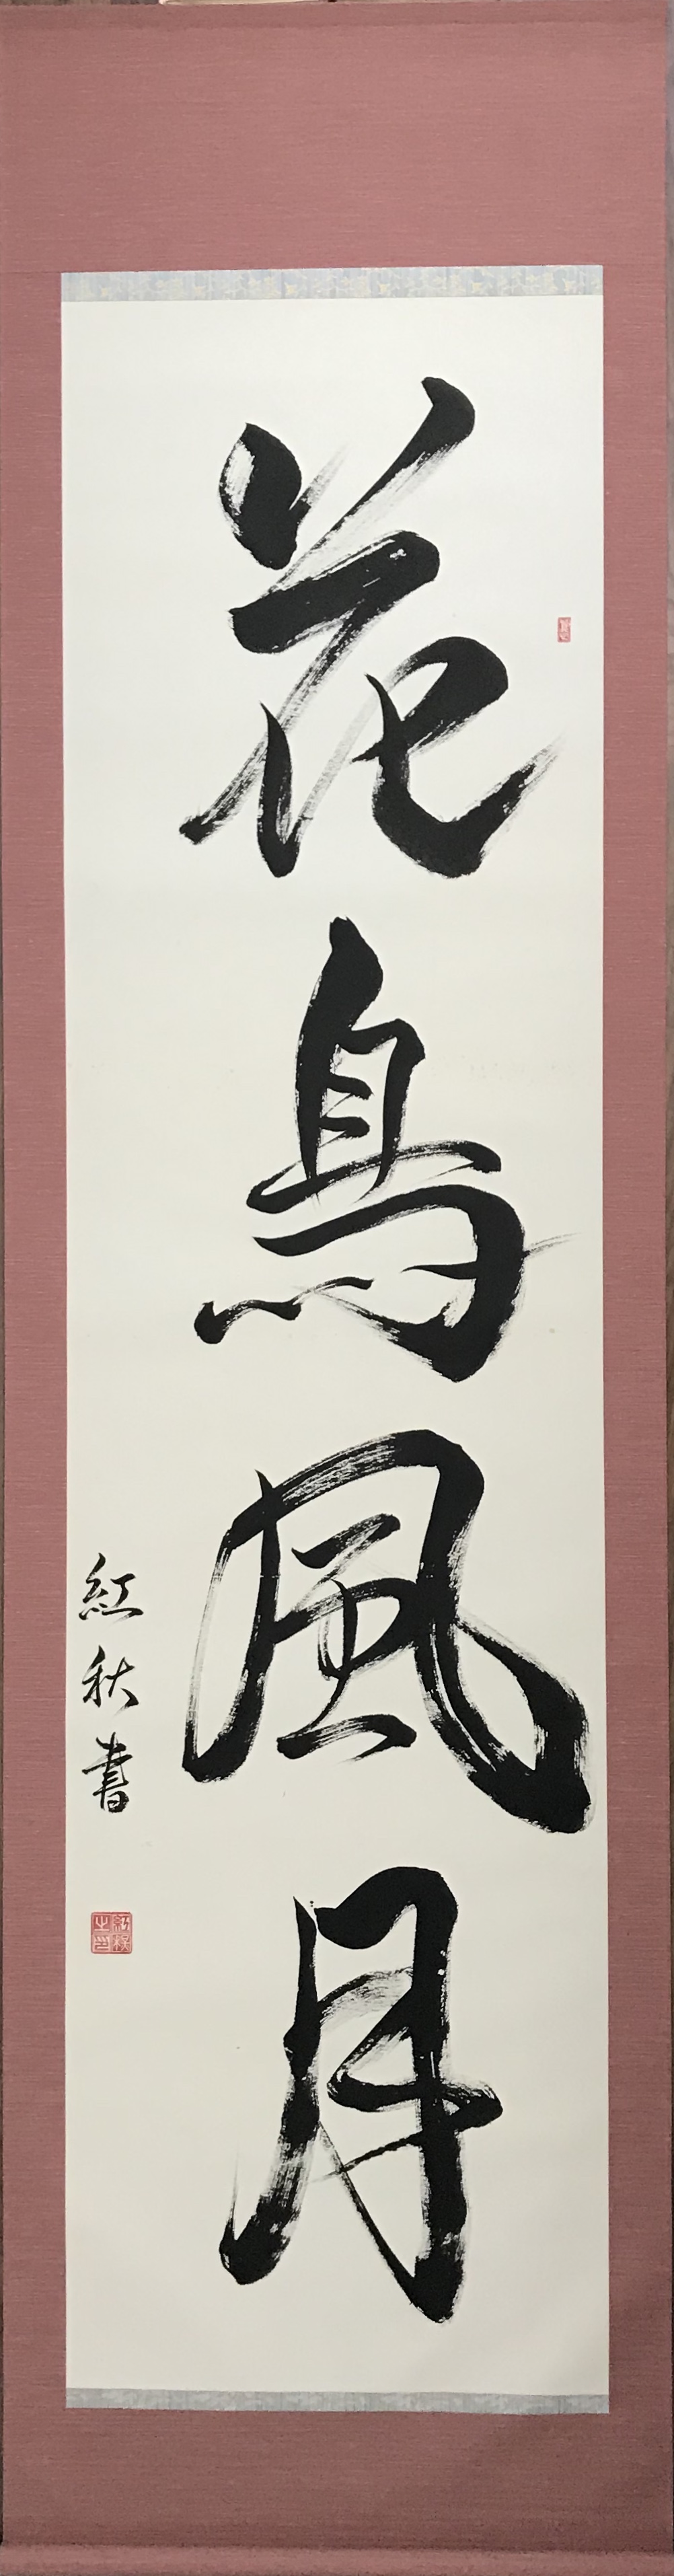 花鳥風月
紅秋書